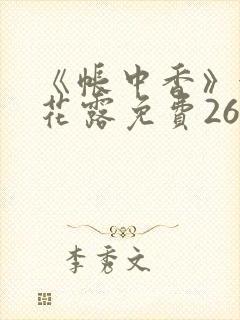 《帐中香》
花露免費26
李秀文